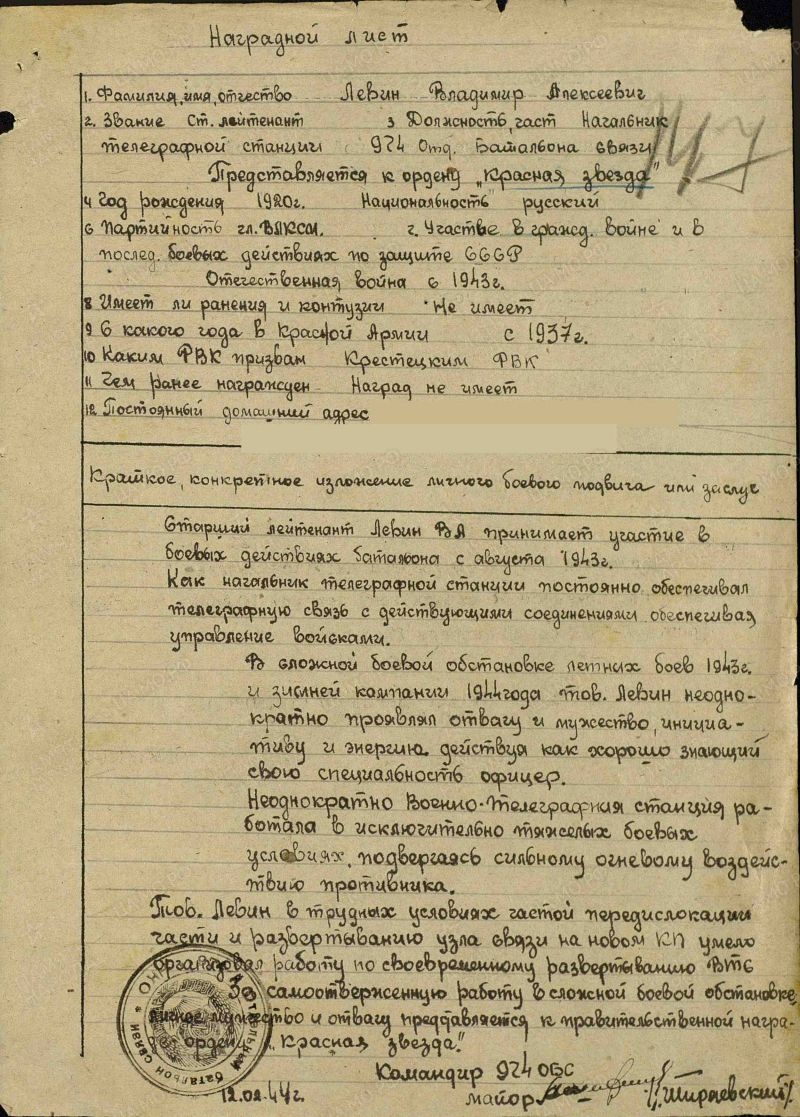 Наградной лист
1. Фамилия, имя, отчество Левин Владимир Алексеевич
2. Звание Ст. лейтенант 3 Должность, част Начальник
телеграфной станции 924 Отд. Батальона связи
Представляется к ордену „Красная звезда"
4 Год рождения 1920г. Национальность русский
6 Партийность чл. ВЛКСМ. г. Участье в гражд. войне и в
послед. боевых действиях по защите СССР
Отечественная война с 1943г.
8 Имеет ли ранения и контузии Не имеет
9 С какого года в Красной Армии с 1937г.
10 Каким РВК призван Крестецким РВК
11 Чем ранее награжден Наград не имеет
12 Постоянный домашний адрес
147
Краткое, конкретное изложение личного боевого подвига или заслуг
Старший лейтенант Левин ВА принимает участие в
боевых действиях батальона с августа 1943г.
Как начальник телеграфной станции постоянно обеспечивал
телеграфную связь с действующими соединениями обеспечивая
управление войсками.
В сложной боевой обстановке летних боев 1943г.
и зимней кампании 1944 года тов. Левин неодно-
кратно проявлял отвагу и мужество, инициа-
тиву и энергию действуя как хорошо знающий
свою специальность офицер.
Неоднократно Военно-телеграфная станция ра-
ботала в исключительно тяжелых боевых
условиях, подвергаясь сильному огневому воздейс-
твию противника.
Тов. Левин в трудных условиях частой передислокации
части и развертыванию узла связи на новом КП умело
организовал работу по своевременному развертыванию ВТС
За самоотверженную работу в сложной боевой обстановке,
личное мужество и отвагу представляется к правительственной награ-
де ордену „Красная звезда."
батальон связи
Командир 924 ОБС
12.02.44г. майор /Шираевский/